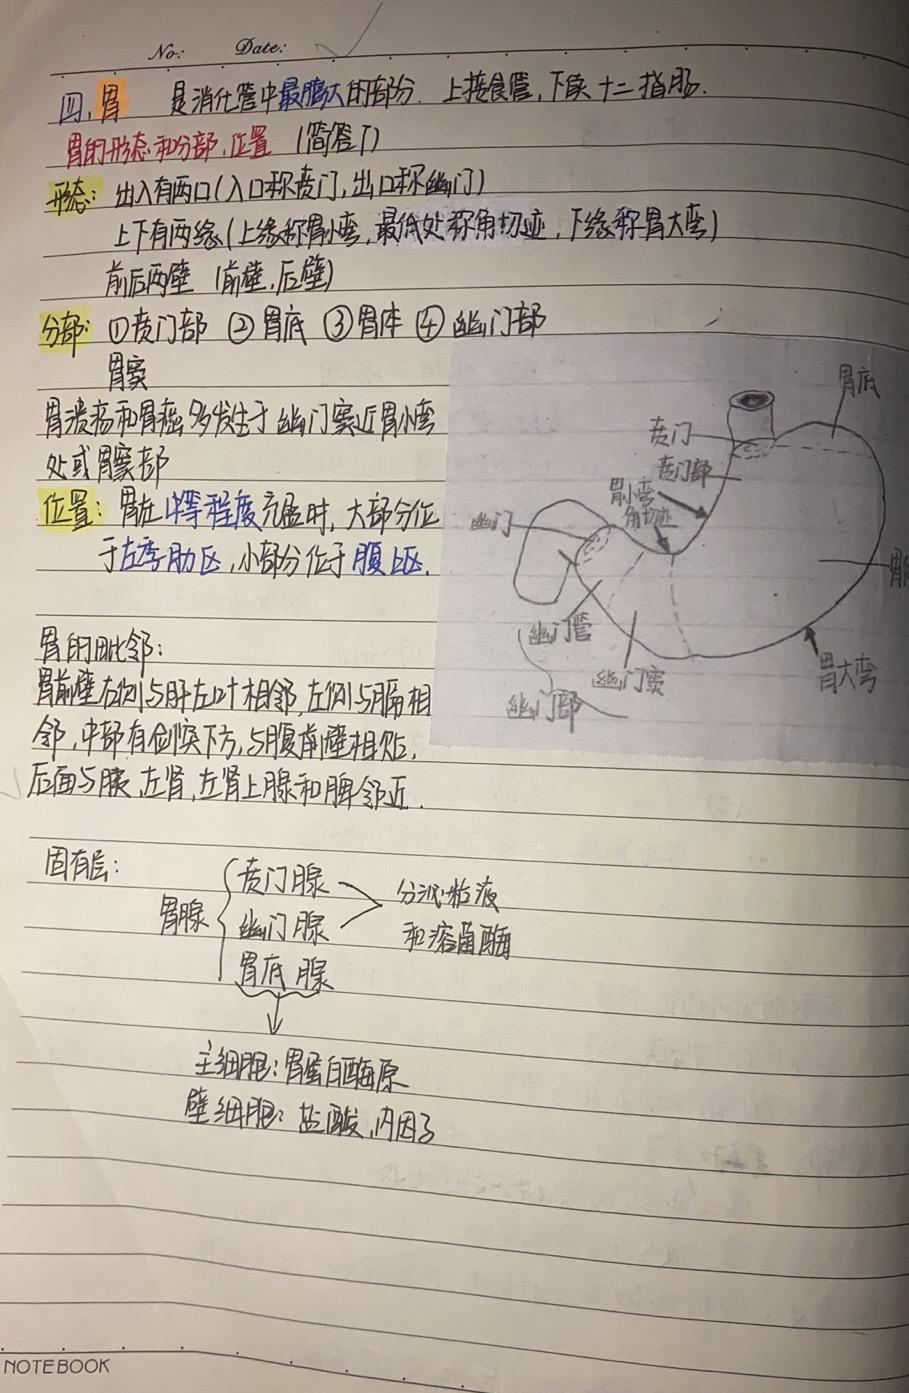 No: Date:
四、胃 是消化管中最膨大的部分. 上接食管, 下续十二指肠.
胃的形态和分部、位置 (简答T)
形态: 出入有两口(入口称贲门, 出口称幽门)
上下有两缘(上缘称胃小弯, 最低处称角切迹, 下缘称胃大弯)
前后两壁 (前壁、后壁)
分部: ①贲门部 ②胃底 ③胃体 ④幽门部
胃窦
胃溃疡和胃癌多发生于幽门窦近胃小弯
处或胃窦部
位置: 胃在中等程度充盈时, 大部分位
于左季肋区, 小部分位于腹上区.
胃底
贲门
贲门部
胃小弯
角切迹
幽门
幽门管
幽门窦
幽门部
胃大弯
胃的毗邻:
胃前壁右侧与肝左叶相邻, 左侧与膈相
邻, 中部有剑突下方, 与腹前壁相贴,
后面与胰、左肾、左肾上腺和脾邻近.
固有层:
胃腺
贲门腺
幽门腺
胃底腺
分泌粘液
和溶菌酶
主细胞: 胃蛋白酶原
壁细胞: 盐酸、内因子
NOTEBOOK